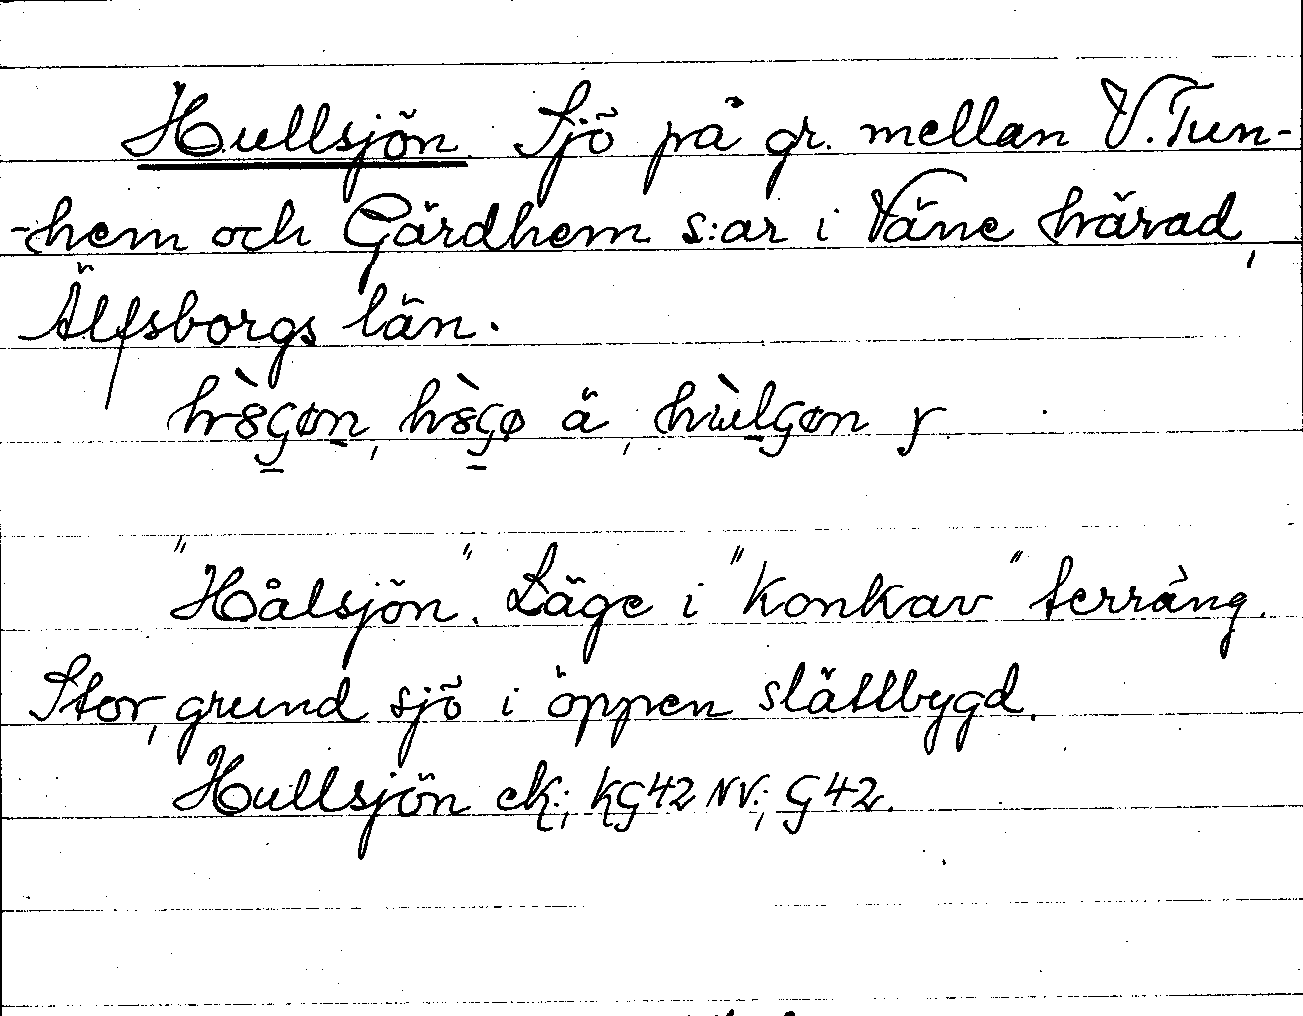 Hullsjön Sjö på gr. mellan V. Tun-
-hem och Gärdhem s:ar i Väne härad,
Älfsborgs län.
ä, y
"Hålsjön". Läge i "konkav" terräng.
Stor, grund sjö i öppen slättbygd.
Hullsjön ek.; KG42 NV.; G42.